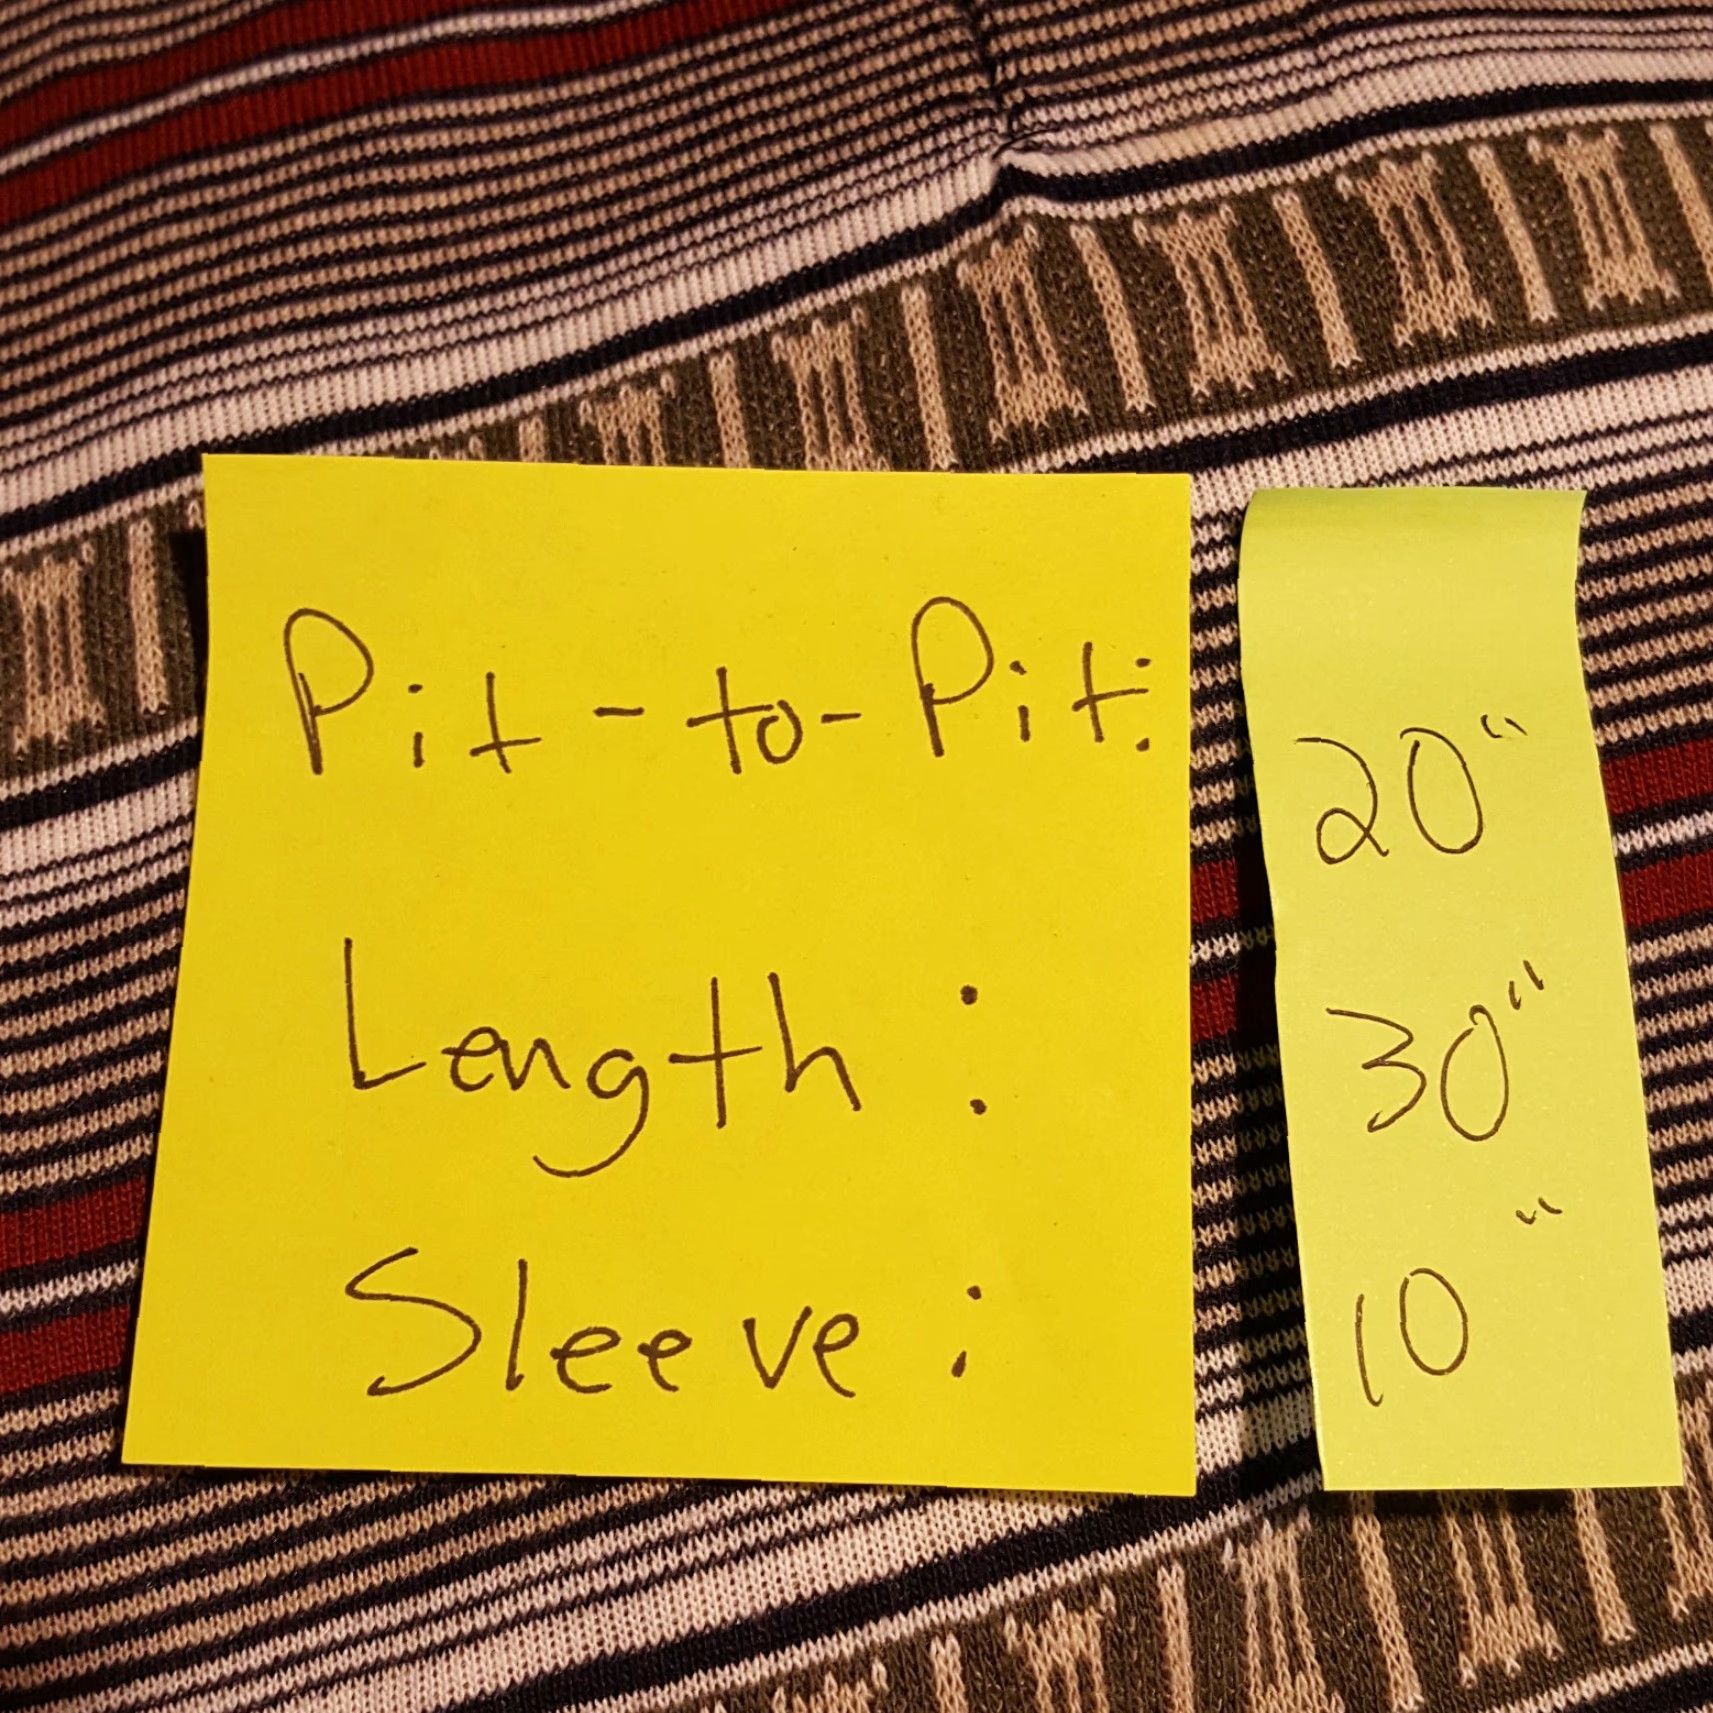 Pit-to-Pit: 20"
Length: 30"
Sleeve: 10"